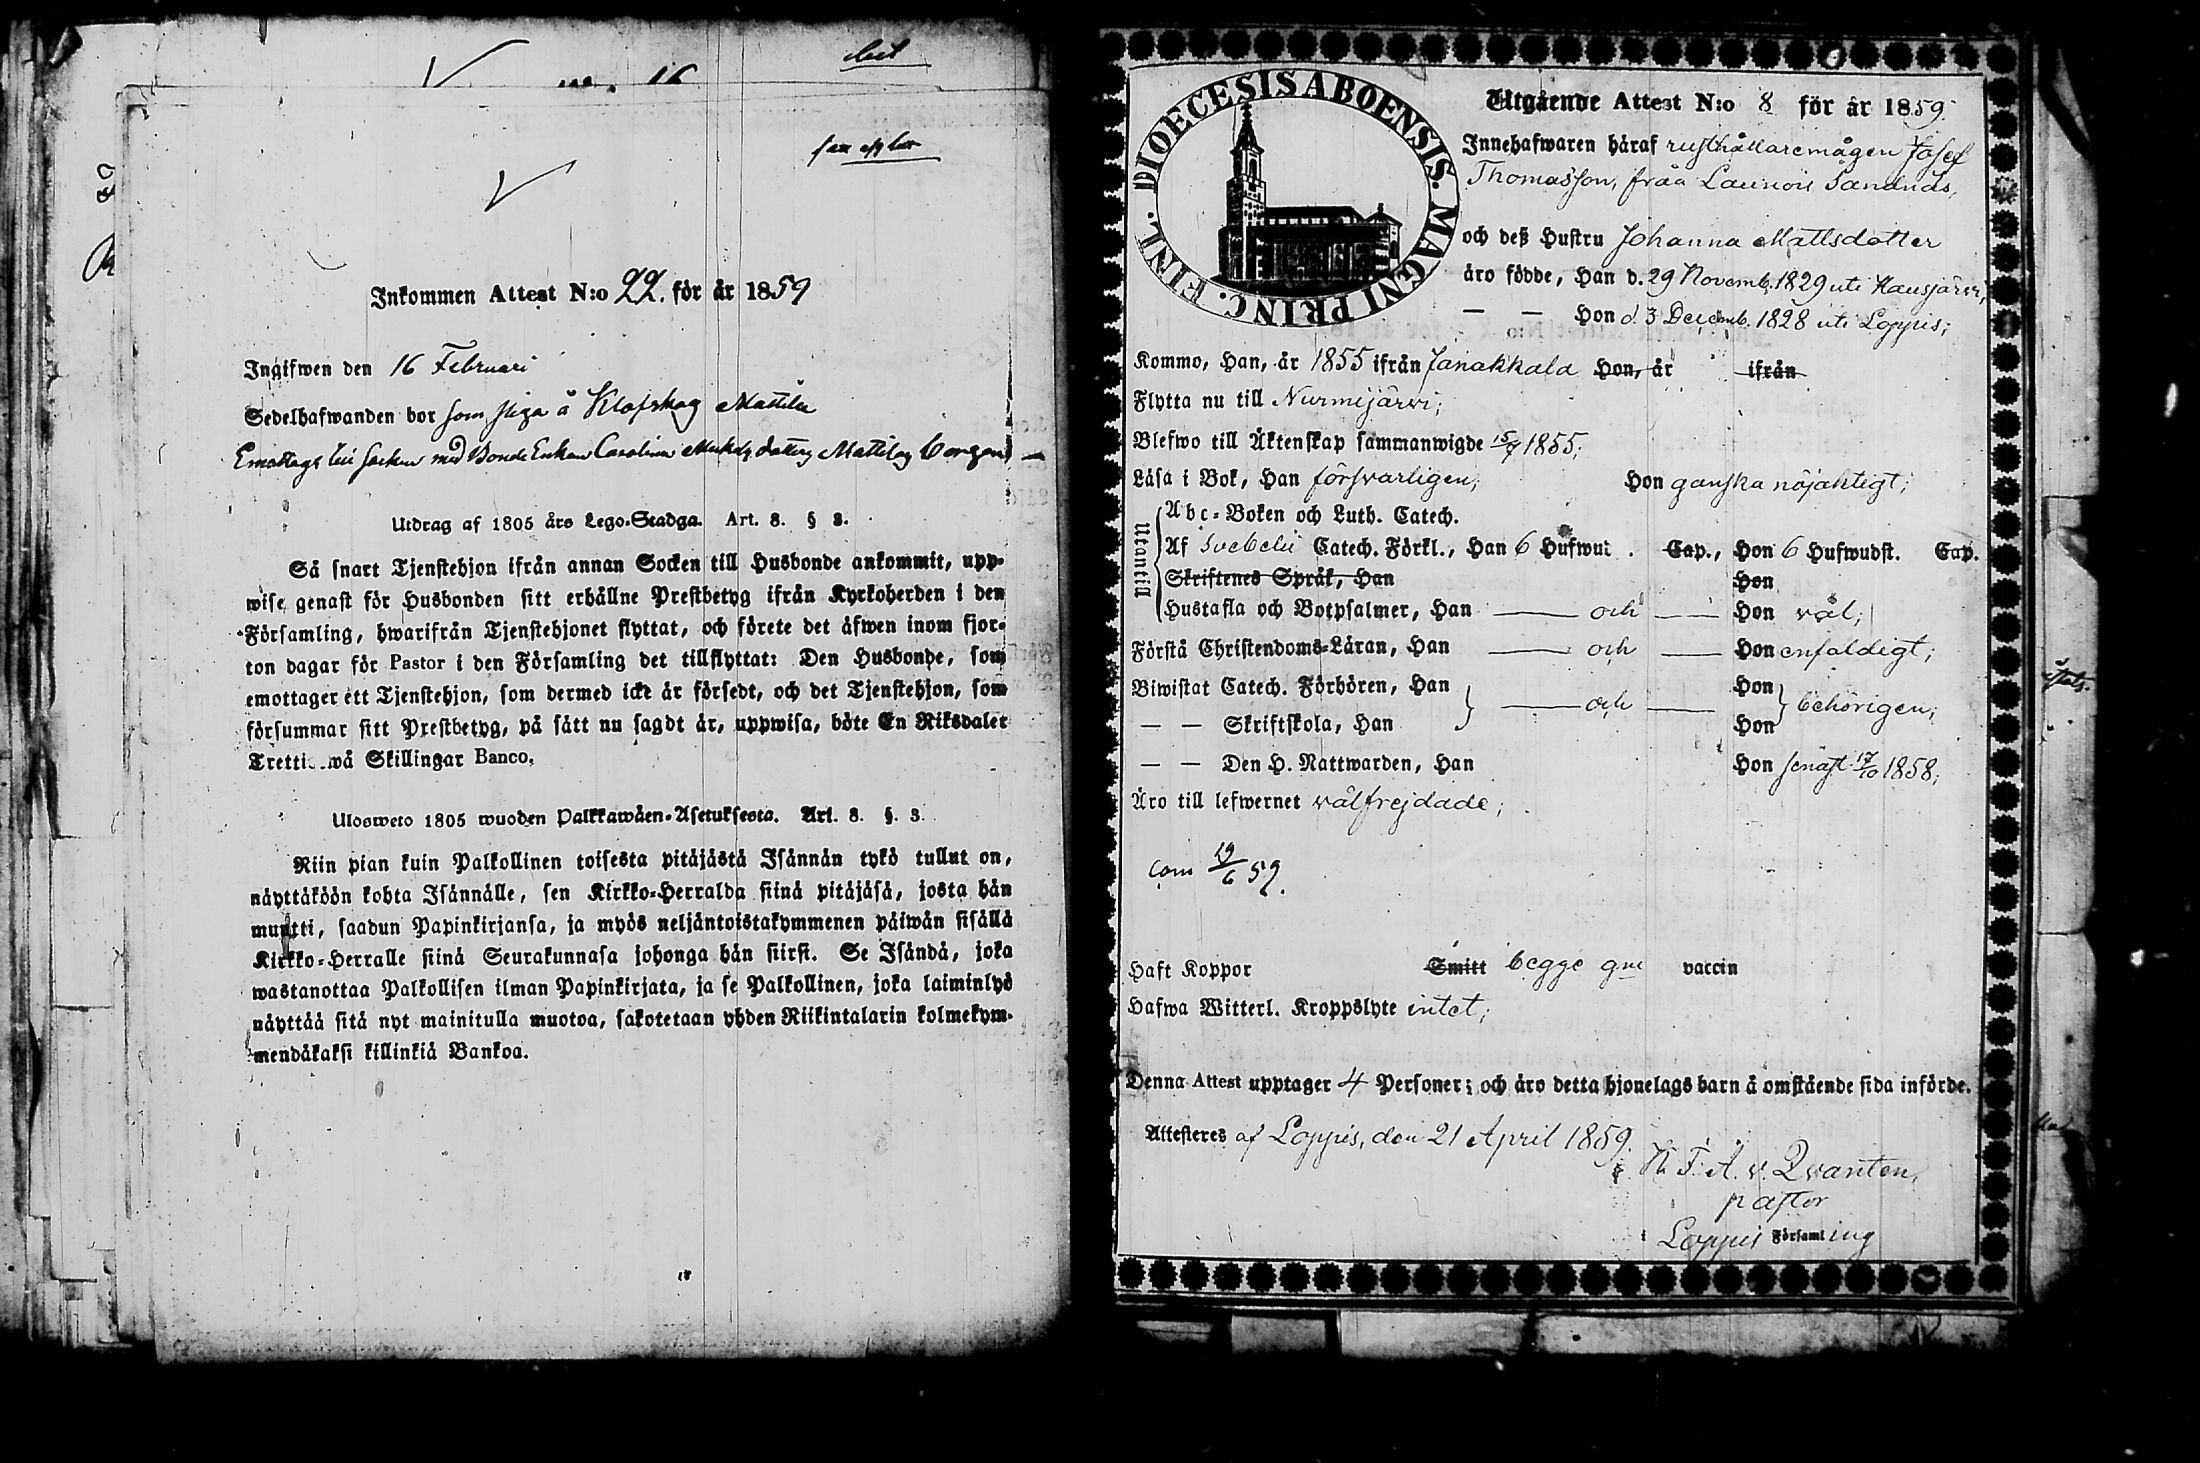 16
Inkommen Attest N:o 22. för år 1859
Ingifwen den 16 Februari
Sedelhafwanden bor som piga å Klafskog Mattila
Emottages till socken med Bonde Enkan Carolina Mattila
Utdrag af 1805 års Lego-Stadga. Art. 8. § 3.
Så snart Tjenstehjon ifrån annan Socken till Husbonde ankommit, upp-
wise genast för Husbonden sitt erhållne Prestbetyg ifrån Kyrkoherden i den
Församling, hwarifrån Tjenstehjonet flyttat, och förete det äfwen inom fjor-
ton dagar för Pastor i den Församling det tillflyttat: Den Husbonde, som
emottager ett Tjenstehjon, som dermed icke är försedt, och det Tjenstehjon, som
försummar sitt Prestbetyg, på sätt nu sagdt är, uppwisa, böte En Riksdaler
Skillingar Banco.
Ulosweto 1805 wuoden Palkkawäen-Asetuksesta. Art. 8. §. 3.
Niin pian kuin Palkollinen toisesta pitäjästä Isännän tykö tullut on,
näyttäköön kohta Isännälle, sen Kirkko-Herralda siinä pitäjäsä, josta hän
muutti, saadun Papinkirjansa, ja myös neljäntoistakymmenen päiwän sisällä
Kirkko-Herralle siinä Seurakunnasa johonga hän siirsi. Se Isändä, joka
wastanottaa Palkollisen ilman Papinkirjata, ja se Palkollinen, joka laiminlyö
näyttää sitä nyt mainitulla muotoa, sakotetaan yhden Riikintalarin kolmekym-
mendäkaksi killinkiä Bankoa.
DIOECESIS ABOENSIS. MAGNI PRINC. FINL.
Utgående Attest N:o 8 för år 1859.
Innehafwaren häraf rusthållaremågen Josef
Thomasson, från Launois Sandnäs,
och deß Hustru Johanna Mattsdotter
äro födde, Han d. 29 Novemb. 1829 uti Hausjärvi,
— — Hon d. 3 Decemb. 1828 uti Loppis;
Kommo, Han, år 1855 ifrån Janakkala Hon, år ifrån
Flytta nu till Nurmijärvi;
Blefwo till Äktenskap sammanwigde 15/4 1855;
Läsa i Bok, Han försvarligen; Hon ganska nöjaktigt;
Utantill
Abc-Boken och Luth. Catech.
Af Svebelii Catech. Förkl., Han 6 Hufwud. Cap., Hon 6 Hufwudst. Cap.
Skriftenes Språk, Han Hon
Hustafla och Botpsalmer, Han — och — Hon väl;
Förstå Christendoms-Läran, Han — och — Hon enfaldigt;
Biwistat Catech. Förhören, Han — och — Hon behörigen;
— — Skriftskola, Han Hon
— — Den H. Nattwarden, Han Hon senast 17/10 1858;
Äro till lefwernet välfrejdade;
Com 19/6 59.
Haft Koppor Smitt begge gm vaccin
Hafwa Witterl. Kroppslyte intet;
Denna Attest upptager 4 Personer; och äro detta hjonelags barn å omstående sida införde.
Attesteres af Loppis, den 21 April 1859.
F. A. v. Qvanten,
pastor
i Loppis Församling